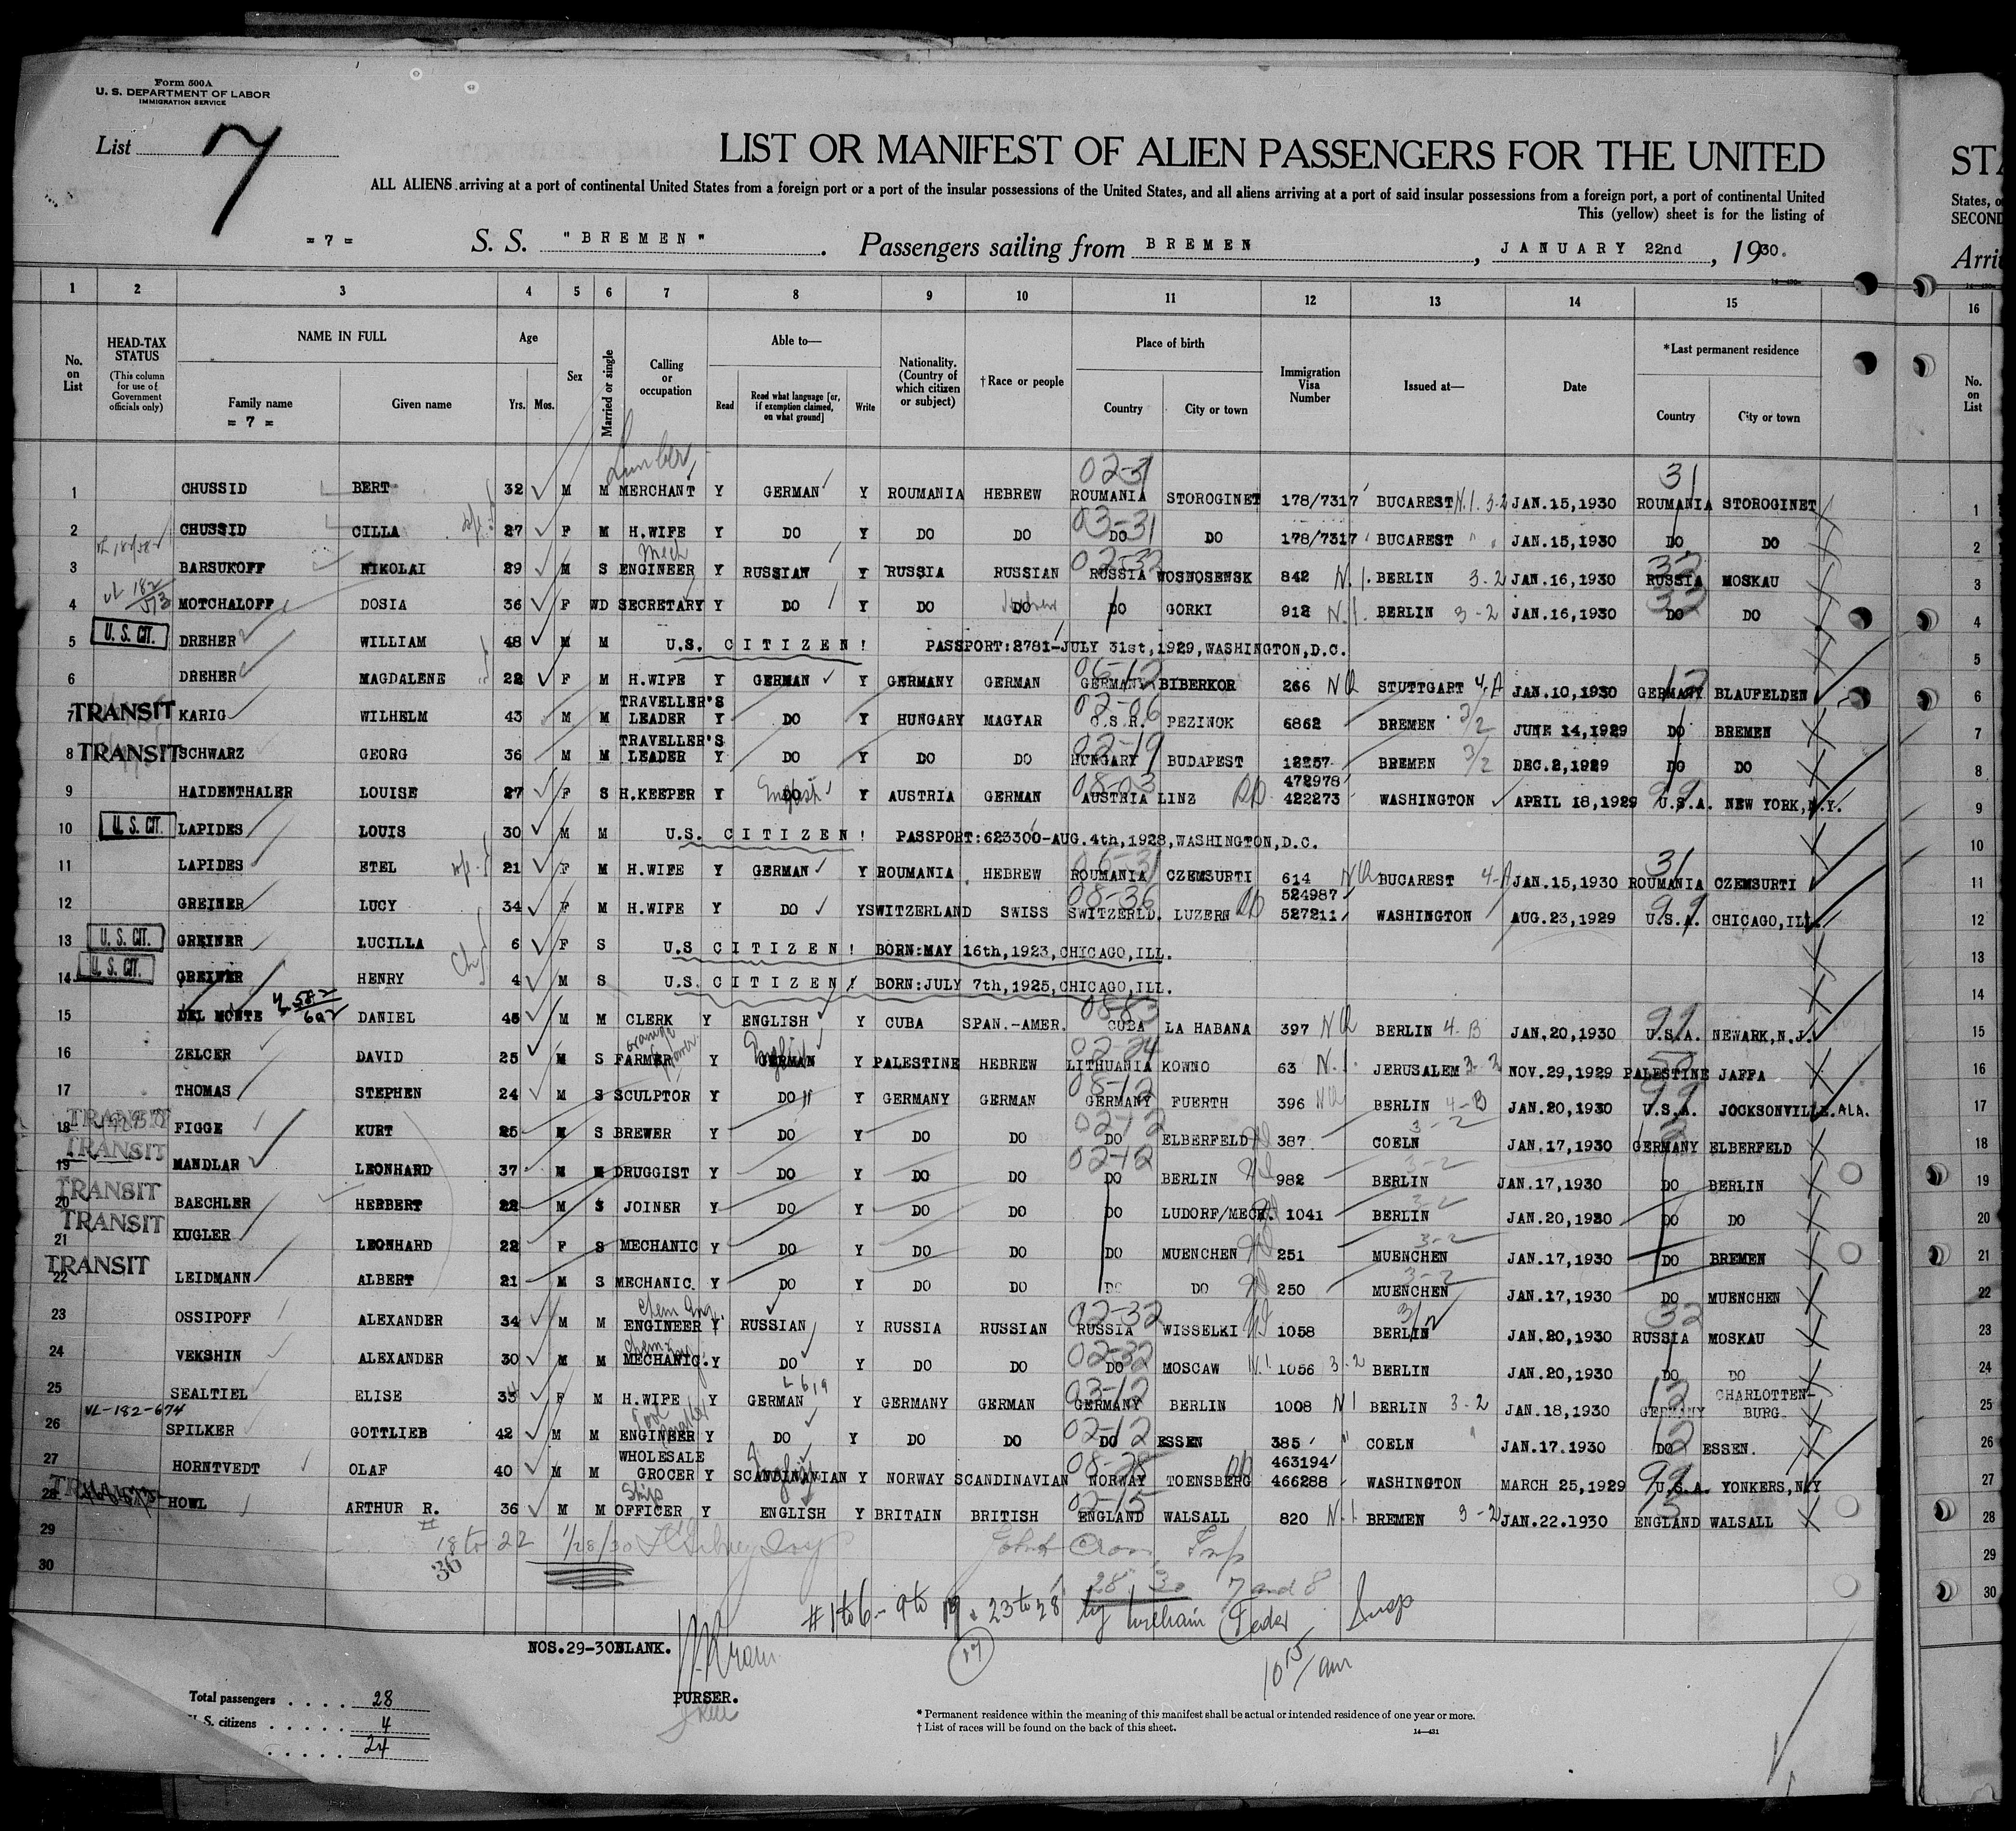 Form 500A
U. S. DEPARTMENT OF LABOR
IMMIGRATION SERVICE
List 7
LIST OR MANIFEST OF ALIEN PASSENGERS FOR THE UNITED
STA
ALL ALIENS arriving at a port of continental United States from a foreign port or a port of the insular possessions of the United States, and all aliens arriving at a port of said insular possessions from a foreign port, a port of continental United
States, o
This (yellow) sheet is for the listing of
SECOND
= 7 = S. S. "BREMEN". Passengers sailing from BREMEN, JANUARY 22nd, 1930.
Arri
14—430
1 2 3 4 5 6 7 8 9 10 11 12 13 14 15 16
No. on List
HEAD-TAX STATUS (This column for use of Government officials only)
NAME IN FULL
Family name = 7 =
Given name
Age Yrs. Mos.
Sex
Married or single
Calling or occupation
Able to—
Read
Read what language [or, if exemption claimed, on what ground]
Write
Nationality. (Country of which citizen or subject)
† Race or people
Place of birth
Country
City or town
Immigration Visa Number
Issued at—
Date
* Last permanent residence
Country
City or town
No. on List
Lumber 02-31 31
1 CHUSSID BERT 32 M M MERCHANT Y GERMAN Y ROUMANIA HEBREW ROUMANIA STOROGINET 178/7317 BUCAREST N.1. 3-2 JAN.15,1930 ROUMANIA STOROGINET 1
2 CHUSSID CILLA 27 F M H.WIFE Y DO Y DO DO 03-31 DO DO 178/7317 BUCAREST " " JAN.15,1930 DO DO 2
3 BARSUKOFF NIKOLAI 29 M S Mech ENGINEER Y RUSSIAN Y RUSSIA RUSSIAN 02-32 RUSSIA WOSNOSENSK 842 N.1. BERLIN 3-2 JAN.16,1930 32 RUSSIA MOSKAU 3
4 VL 182/573 MOTCHALOFF DOSIA 36 F WD SECRETARY Y DO Y DO DO Hebrew DO GORKI 912 N.1. BERLIN 3-2 JAN.16,1930 32 DO DO 4
5 U. S. CIT. DREHER WILLIAM 48 M M U.S. CITIZEN! PASSPORT:2781-JULY 31st,1929,WASHINGTON,D.C. 5
6 DREHER MAGDALENE 22 F M H.WIFE Y GERMAN Y GERMANY GERMAN 06-12 GERMANY BIBERKOR 266 NQ STUTTGART 4-A JAN.10,1930 12 GERMANY BLAUFELDEN 6
7 TRANSIT KARIG WILHELM 43 M M TRAVELLER'S LEADER Y DO Y HUNGARY MAGYAR 02-06 C.S.R. PEZINOK 6862 BREMEN 3/2 JUNE 14,1929 DO BREMEN 7
8 TRANSIT SCHWARZ GEORG 36 M M TRAVELLER'S LEADER Y DO Y DO DO 02-19 HUNGARY BUDAPEST 12257 BREMEN 3/2 DEC.2,1929 DO DO 8
9 HAIDENTHALER LOUISE 27 F S H.KEEPER Y DO English Y AUSTRIA GERMAN 08-03 AUSTRIA LINZ 472978 422273 WASHINGTON APRIL 18,1929 99 U.S.A. NEW YORK,N.Y. 9
10 U. S. CIT. LAPIDES LOUIS 30 M M U.S. CITIZEN! PASSPORT:623300-AUG.4th,1928,WASHINGTON,D.C. 10
11 LAPIDES ETEL 21 F M H.WIFE Y GERMAN Y ROUMANIA HEBREW 06-31 ROUMANIA CZEMSURTI 614 NQ BUCAREST 4-A JAN.15,1930 31 ROUMANIA CZEMSURTI 11
12 GREINER LUCY 34 F M H.WIFE Y DO Y SWITZERLAND SWISS 08-36 SWITZERLD. LUZERN 524987 527211 WASHINGTON AUG.23,1929 99 U.S.A. CHICAGO,ILL. 12
13 U. S. CIT. GREINER LUCILLA 6 F S U.S CITIZEN! BORN:MAY 16th,1923,CHICAGO,ILL. 13
14 U. S. CIT. GREINER HENRY 4 M S U.S. CITIZEN! BORN:JULY 7th,1925,CHICAGO,ILL. 14
15 DEL MONTE DANIEL 45 M M CLERK Y ENGLISH Y CUBA SPAN.-AMER. 08-83 CUBA LA HABANA 397 NQ BERLIN 4-B JAN.20,1930 99 U.S.A. NEWARK,N.J. 15
16 ZELCER DAVID 25 M S FARMER orange grower Y GERMAN English Y PALESTINE HEBREW 02-24 LITHUANIA KOWNO 63 N.1. JERUSALEM 3-2 NOV.29,1929 PALESTINE JAFFA 16
17 THOMAS STEPHEN 24 M S SCULPTOR Y DO Y GERMANY GERMAN 08-12 GERMANY FUERTH 396 NQ BERLIN 4-B JAN.20,1930 99 U.S.A. JOCKSONVILLE.ALA. 17
18 TRANSIT FIGGE KURT 25 M S BREWER Y DO Y DO DO 02-12 DO ELBERFELD 387 COELN 3-2 JAN.17,1930 GERMANY ELBERFELD 18
19 TRANSIT MANDLAR LEONHARD 37 M M DRUGGIST Y DO Y DO DO 02-12 DO BERLIN 982 BERLIN 3-2 JAN.17,1930 DO BERLIN 19
20 TRANSIT BAECHLER HERBERT 22 M S JOINER Y DO Y DO DO DO LUDORF/MECK. 1041 BERLIN 3-2 JAN.20,1930 DO DO 20
21 TRANSIT KUGLER LEONHARD 22 F S MECHANIC Y DO Y DO DO DO MUENCHEN 251 MUENCHEN 3-2 JAN.17,1930 DO BREMEN 21
22 TRANSIT LEIDMANN ALBERT 21 M S MECHANIC. Y DO Y DO DO DO DO 250 MUENCHEN 3-2 JAN.17,1930 DO MUENCHEN 22
23 OSSIPOFF ALEXANDER 34 M M Chem Eng. ENGINEER Y RUSSIAN Y RUSSIA RUSSIAN 02-32 RUSSIA WISSELKI 1058 BERLIN 3/2 JAN.20,1930 32 RUSSIA MOSKAU 23
24 VEKSHIN ALEXANDER 30 M M MECHANIC. Y DO Y DO DO 02-32 DO MOSCAW N.1. 1056 3-2 BERLIN JAN.20,1930 DO DO 24
25 SEALTIEL ELISE 35 F M H.WIFE Y GERMAN Y GERMANY GERMAN 03-12 GERMANY BERLIN 1008 N1 BERLIN 3-2 JAN.18,1930 12 GERMANY CHARLOTTEN-BURG. 25
VL-182-674
26 SPILKER GOTTLIEB 42 M M ENGINEER Y DO Y DO DO 02-12 DO ESSEN 385 " COELN " JAN.17.1930 12 DO ESSEN. 26
27 HORNTVEDT OLAF 40 M M WHOLESALE GROCER Y SCANDINAVIAN English Y NORWAY SCANDINAVIAN 08-28 NORWAY TOENSBERG 463194 466288 WASHINGTON MARCH 25,1929 99 U.S.A. YONKERS,N.Y 27
28 TRANSIT HOWL ARTHUR R. 36 M M Ship OFFICER Y ENGLISH Y BRITAIN BRITISH 02-15 ENGLAND WALSALL 820 N.1 BREMEN 3-2 JAN.22.1930 ENGLAND WALSALL 28
29 18 to 22 1/28/30 Insp John Insp 29
30 36 28 30 7 and 8 30
#1 to 6 - 9 to 19 & 23 to 28 by William Insp
NOS.29-30BLANK. 17 10 15/am
PURSER.
Total passengers . . . . 28
U. S. citizens . . . . . 4
. . . . . 24
* Permanent residence within the meaning of this manifest shall be actual or intended residence of one year or more.
† List of races will be found on the back of this sheet. 14—431